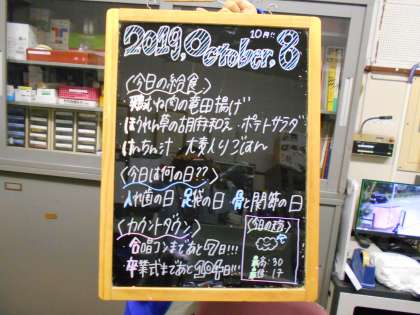 2019, October. 8
10月に
<今日の給食>
鶏むね肉の竜田揚げ
ほうれん草の胡麻和え・ポテトサラダ
けんちん汁 大麦入りごはん
<今日は何の日??>
入れ歯の日 足袋の日 骨と関節の日
<カウントダウン>
合唱コンまであと7日!!!
卒業式まであと104日!!!
<今日の天気>
最高:30
最低:17